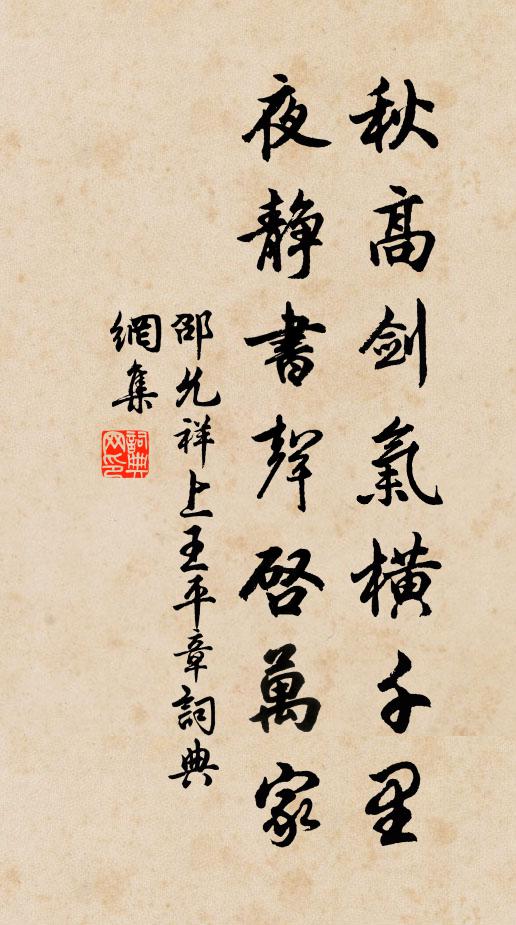 秋高剑氣橫千里
夜靜書聲啓萬家
邵允祥上王平章詞典
網集
詞典
网印